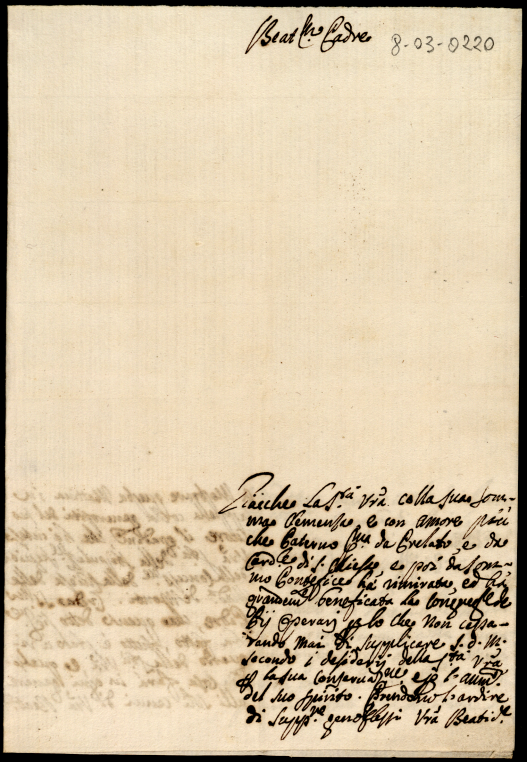 Beat.mo Padre
8-03-0220
Giàche la S.tà Vrã colla sua som-
ma Clemenza, e con amore più
che Paterno q.ta da Prelato, e da
Card.le di S. Chiesa, e poi da som-
mo Pontefice hà rimirata, e
grandem.te beneficata la Congreg.e de
Pij Operarj p lo che non cessa-
rando mai di supplicare S. D. M.
secondo i desiderij della S.tà Vrã
p la sua conservaz.ne e p l'aum.to
del suo spirito. Prendono l'ardire
di supp.re genoflessi Vrã Beatid.e